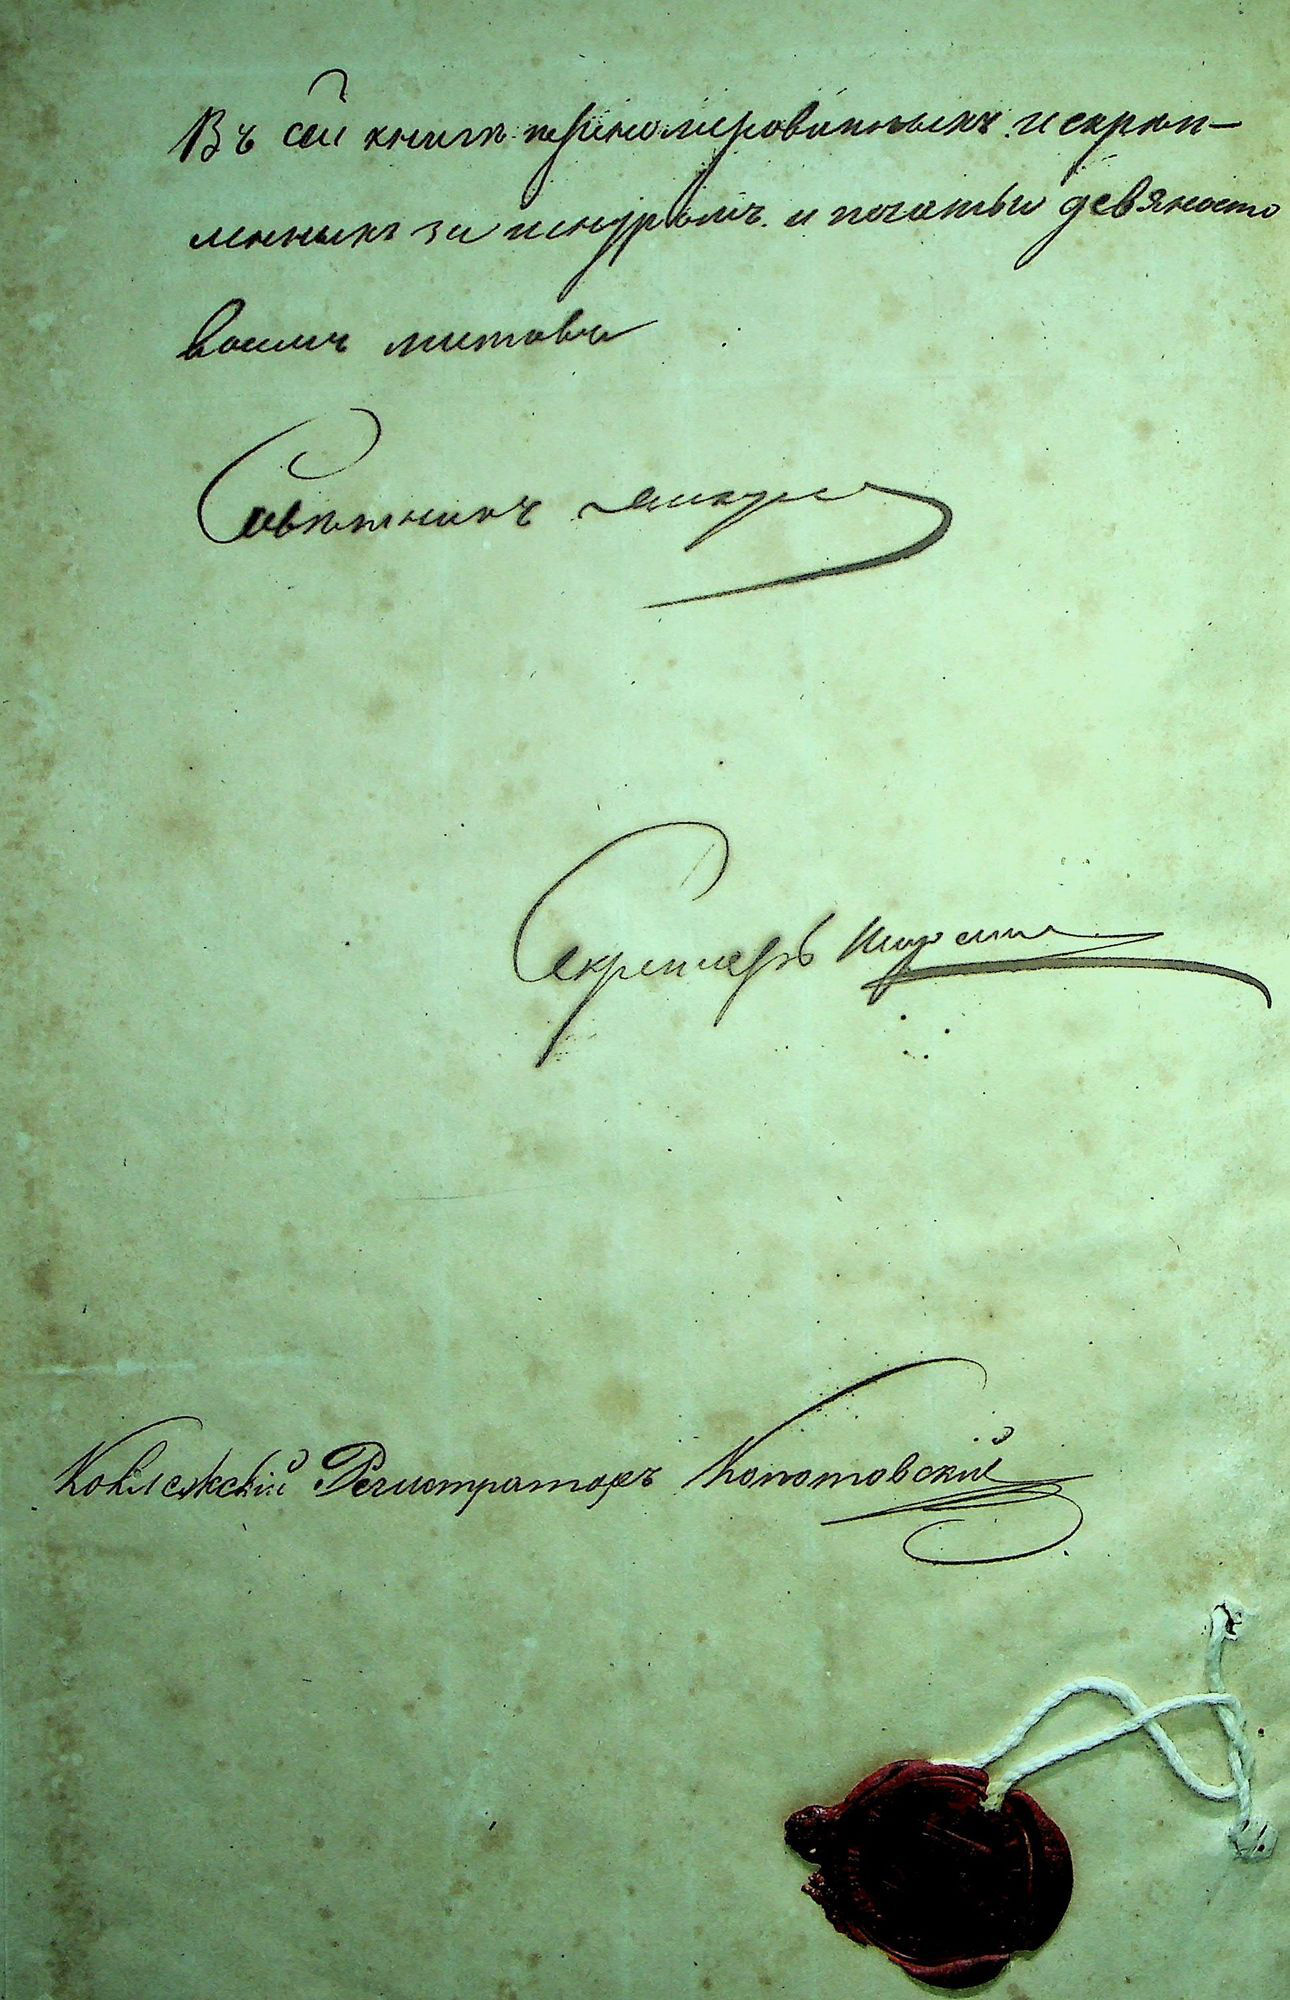 Въ сей книгѣ перномерованныхъ и скрѣп-
ленныхъ за шнуромъ и печатью девяносто
восемь листовъ
Совѣтникъ
Секретарь
Коллежскій Регистраторъ Копотовскій